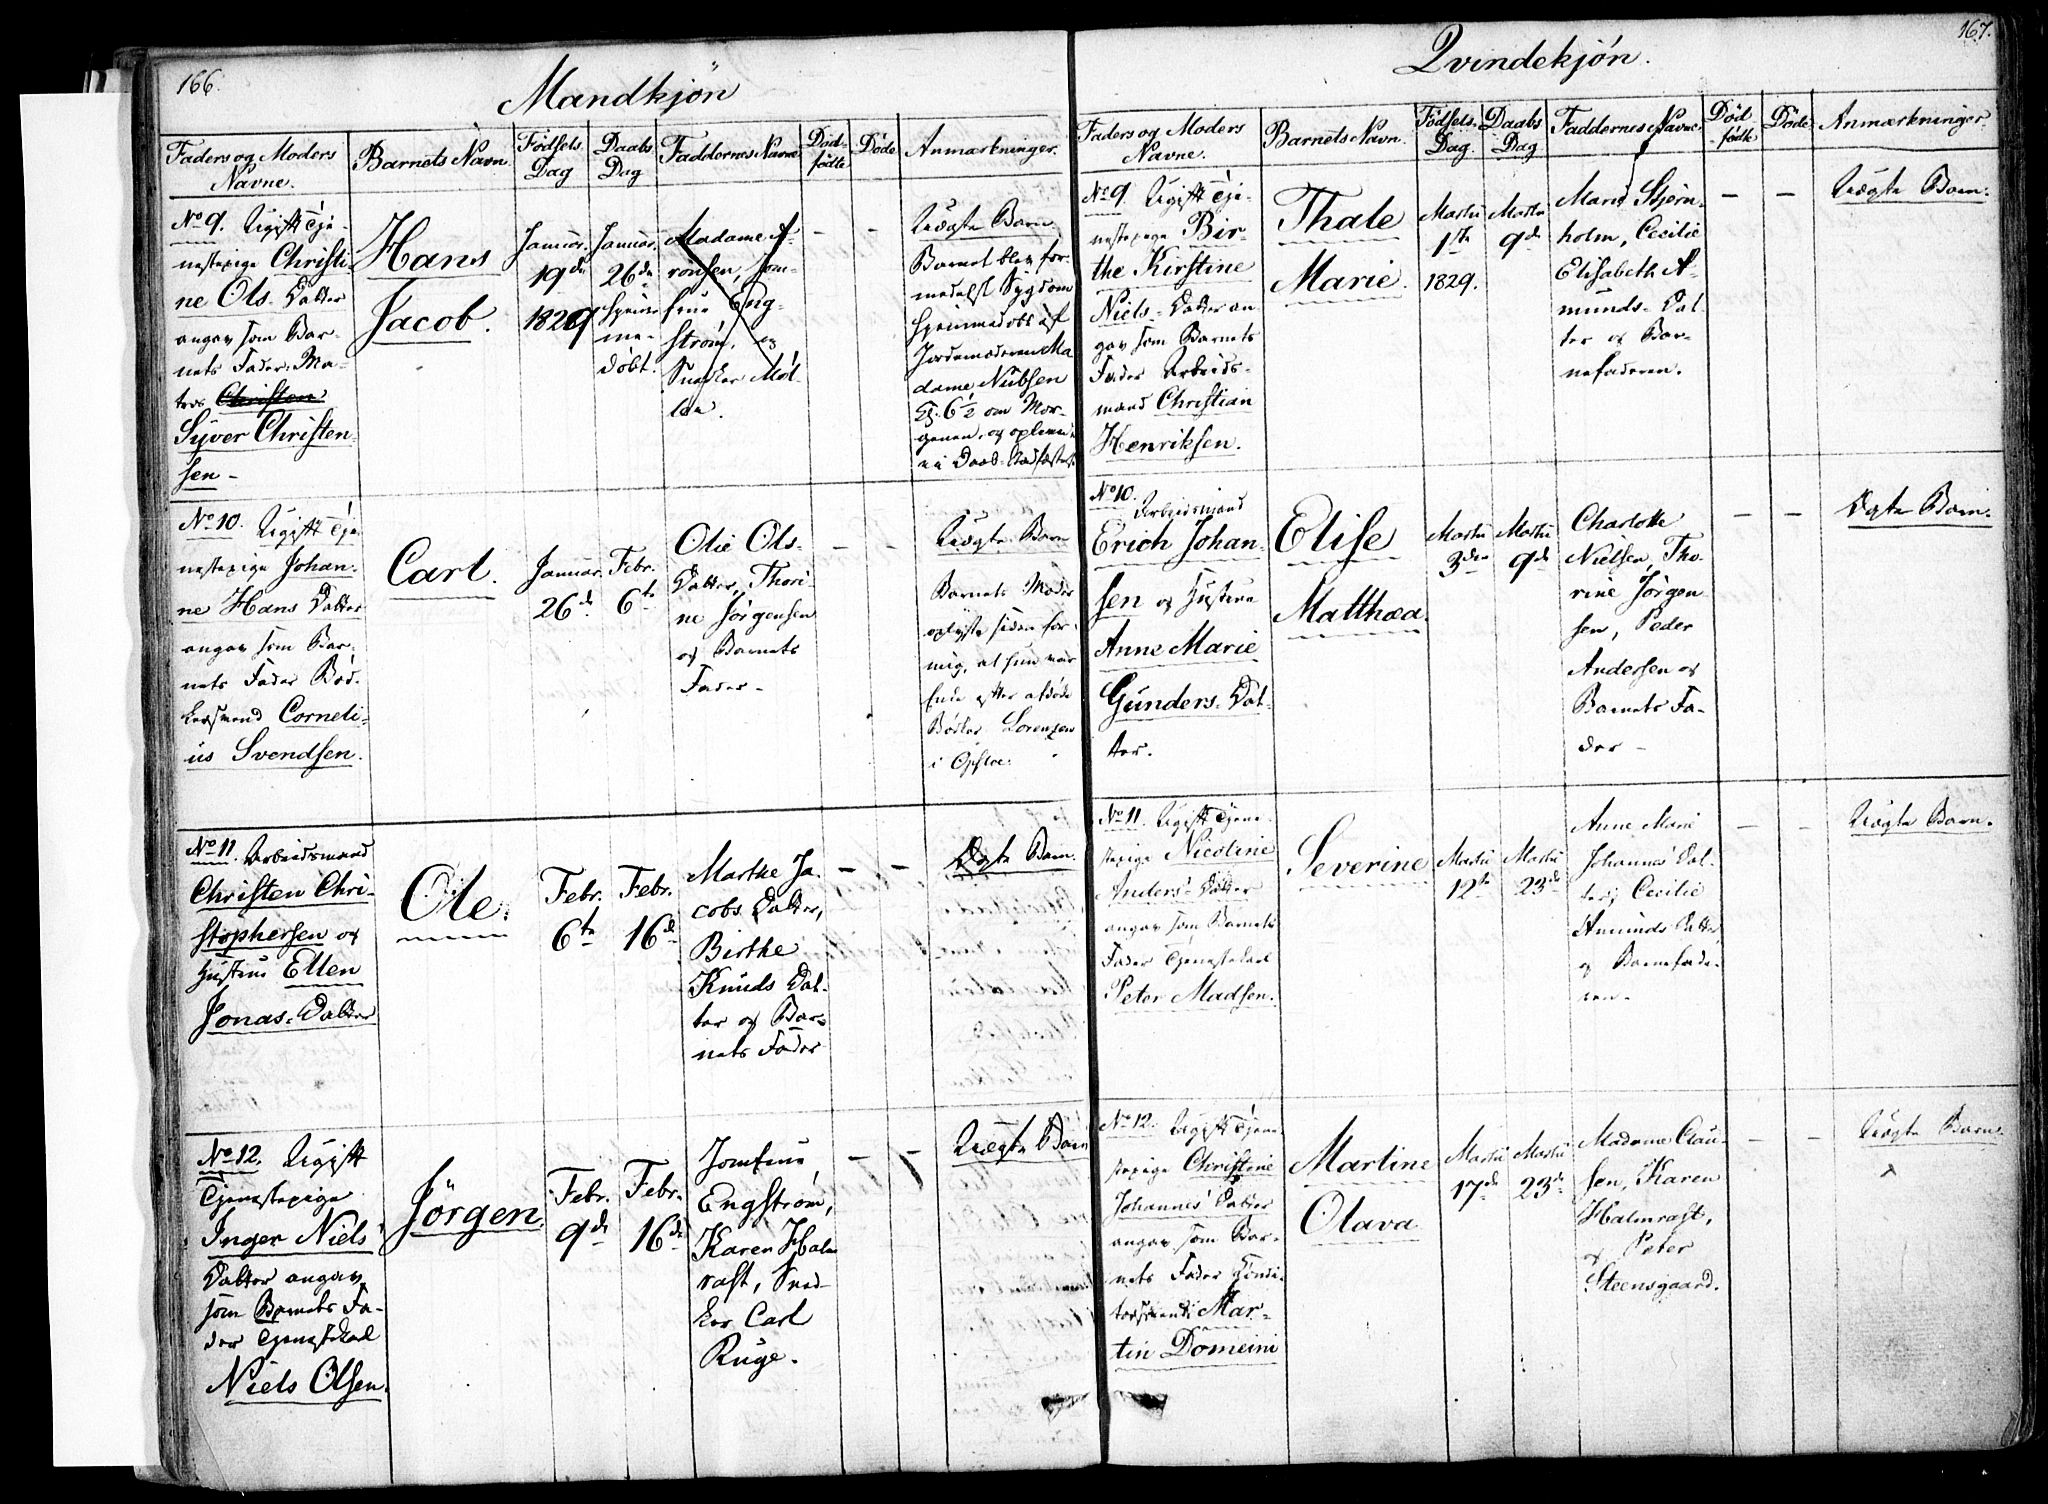 166.
Mandkjön
Faders og Moders
Navne.
Barnets Navn.
Födsels
Dag
Daabs
Dag
Faddernes Navne
Död-
födte
Döde
Anmærkninger.
No 9. Ugift Tje-
nestepige Christi-
ne Ols-Datter
angav som Bar-
nets Fader, Ma-
tros Christen
Syver Christen-
sen -
Hans
Jacob.
Januar.
19de
1829
Januar.
26de
hjemme-
döbt.
Madame A-
ronsen, Jom-
frue Eng-
ström, og
Snedker Möl-
ler.
-
-
Uægte Barn.
Barnet blev for-
medelst Sygdom
hjemmedöbt af
Jordemoderen Ma
dame Nübsen
Kl. 6½ om Mor-
genen, og
No 10. Ugift Tje-
nestepige Johan-
ne Hans Datter
angav som Bar-
nets Fader Böd-
kersvend Corneli-
us Svendsen.
Carl.
Januar.
26de
Febr.
6te
Olie Ols-
Datter, Thori-
ne Jörgensen
og Barnets
Fader -
-
-
Uægte Barn
Barnets Moder
oplyste siden for
mig, at hun var
Enke efter afdöde
Bödker Lorenzen
i Opsloe.
No 11. Arbeidsmand
Christen Chri-
stophersen og
Hustrue Ellen
Jonas-Datter
Ole.
Febr.
6te
Febr.
16de
Marthe Ja-
cobs Datter,
Birthe
Knuds Dat-
ter og Bar-
nets Fader
-
-
Ægte Barn.
No 12. Ugift
Tjenestepige
Inger Niels
Datter angav
som Barnets Fa-
der Tjenestekarl
Niels Olsen.
Jörgen.
Febr.
9de
Febr.
16de
Jomfrue
Engström,
Karen Halm
rast, Sned-
ker Carl
Ruge.
-
-
Uægte Barn
167.
Qvindekjön.
Faders og Moders
Navne.
Barnets Navn.
Födsels.
Dag.
Daabs
Dag
Faddernes Navne
Död
-födte
Döde
Anmærkninger
No 9. Ugift Tje-
nestepige Bir-
the Kirstine
Niels-Datter an-
gav som Barnets
Fader Arbeids-
mand Christian
Henriksen.
Thale
Marie.
Martii
1ste
1829.
Martii
9de
Maris Stjern-
holm, Cecilie
Elisabeth A-
munds-Dat
ter og Bar-
nefaderen.
-
-
Uægte Barn.
No 10.
Arbeidsmand
Erich Johan-
sen og Hustrue
Anne Marie
Gunders-Dat-
ter.
Elise
Matthea.
Martii
3die
Martii
9de
Charlotte
Nielsen, Tho-
rine Jörgen
sen, Peder
Andersen og
Barnets Fa-
der -
-
-
Ægte Barn.
No 11. Ugift Tjene-
stepige Nicoline
Anders'-Datter
angav som Barnets
Fader Tjenestekarl
Peter Madsen.
Severine
Martii
12te
Martii
23de
Anne Marie
Johannes' Dat-
ter, Cecilie
Amunds Datter
og Barnefade-
ren -
-
-
Uægte Barn.
No 12. Ugift Tjene-
stepige Christine
Johannes' Datter
angav som Bar-
nets Fader Condi-
torsvend Mar-
tin Domeini
Martine
Olava
Martii
17de
Martii
23de
Madame Clau-
sen, Karen
Halmrast,
og Peter
Steensgaard.
-
-
Uægte Barn.